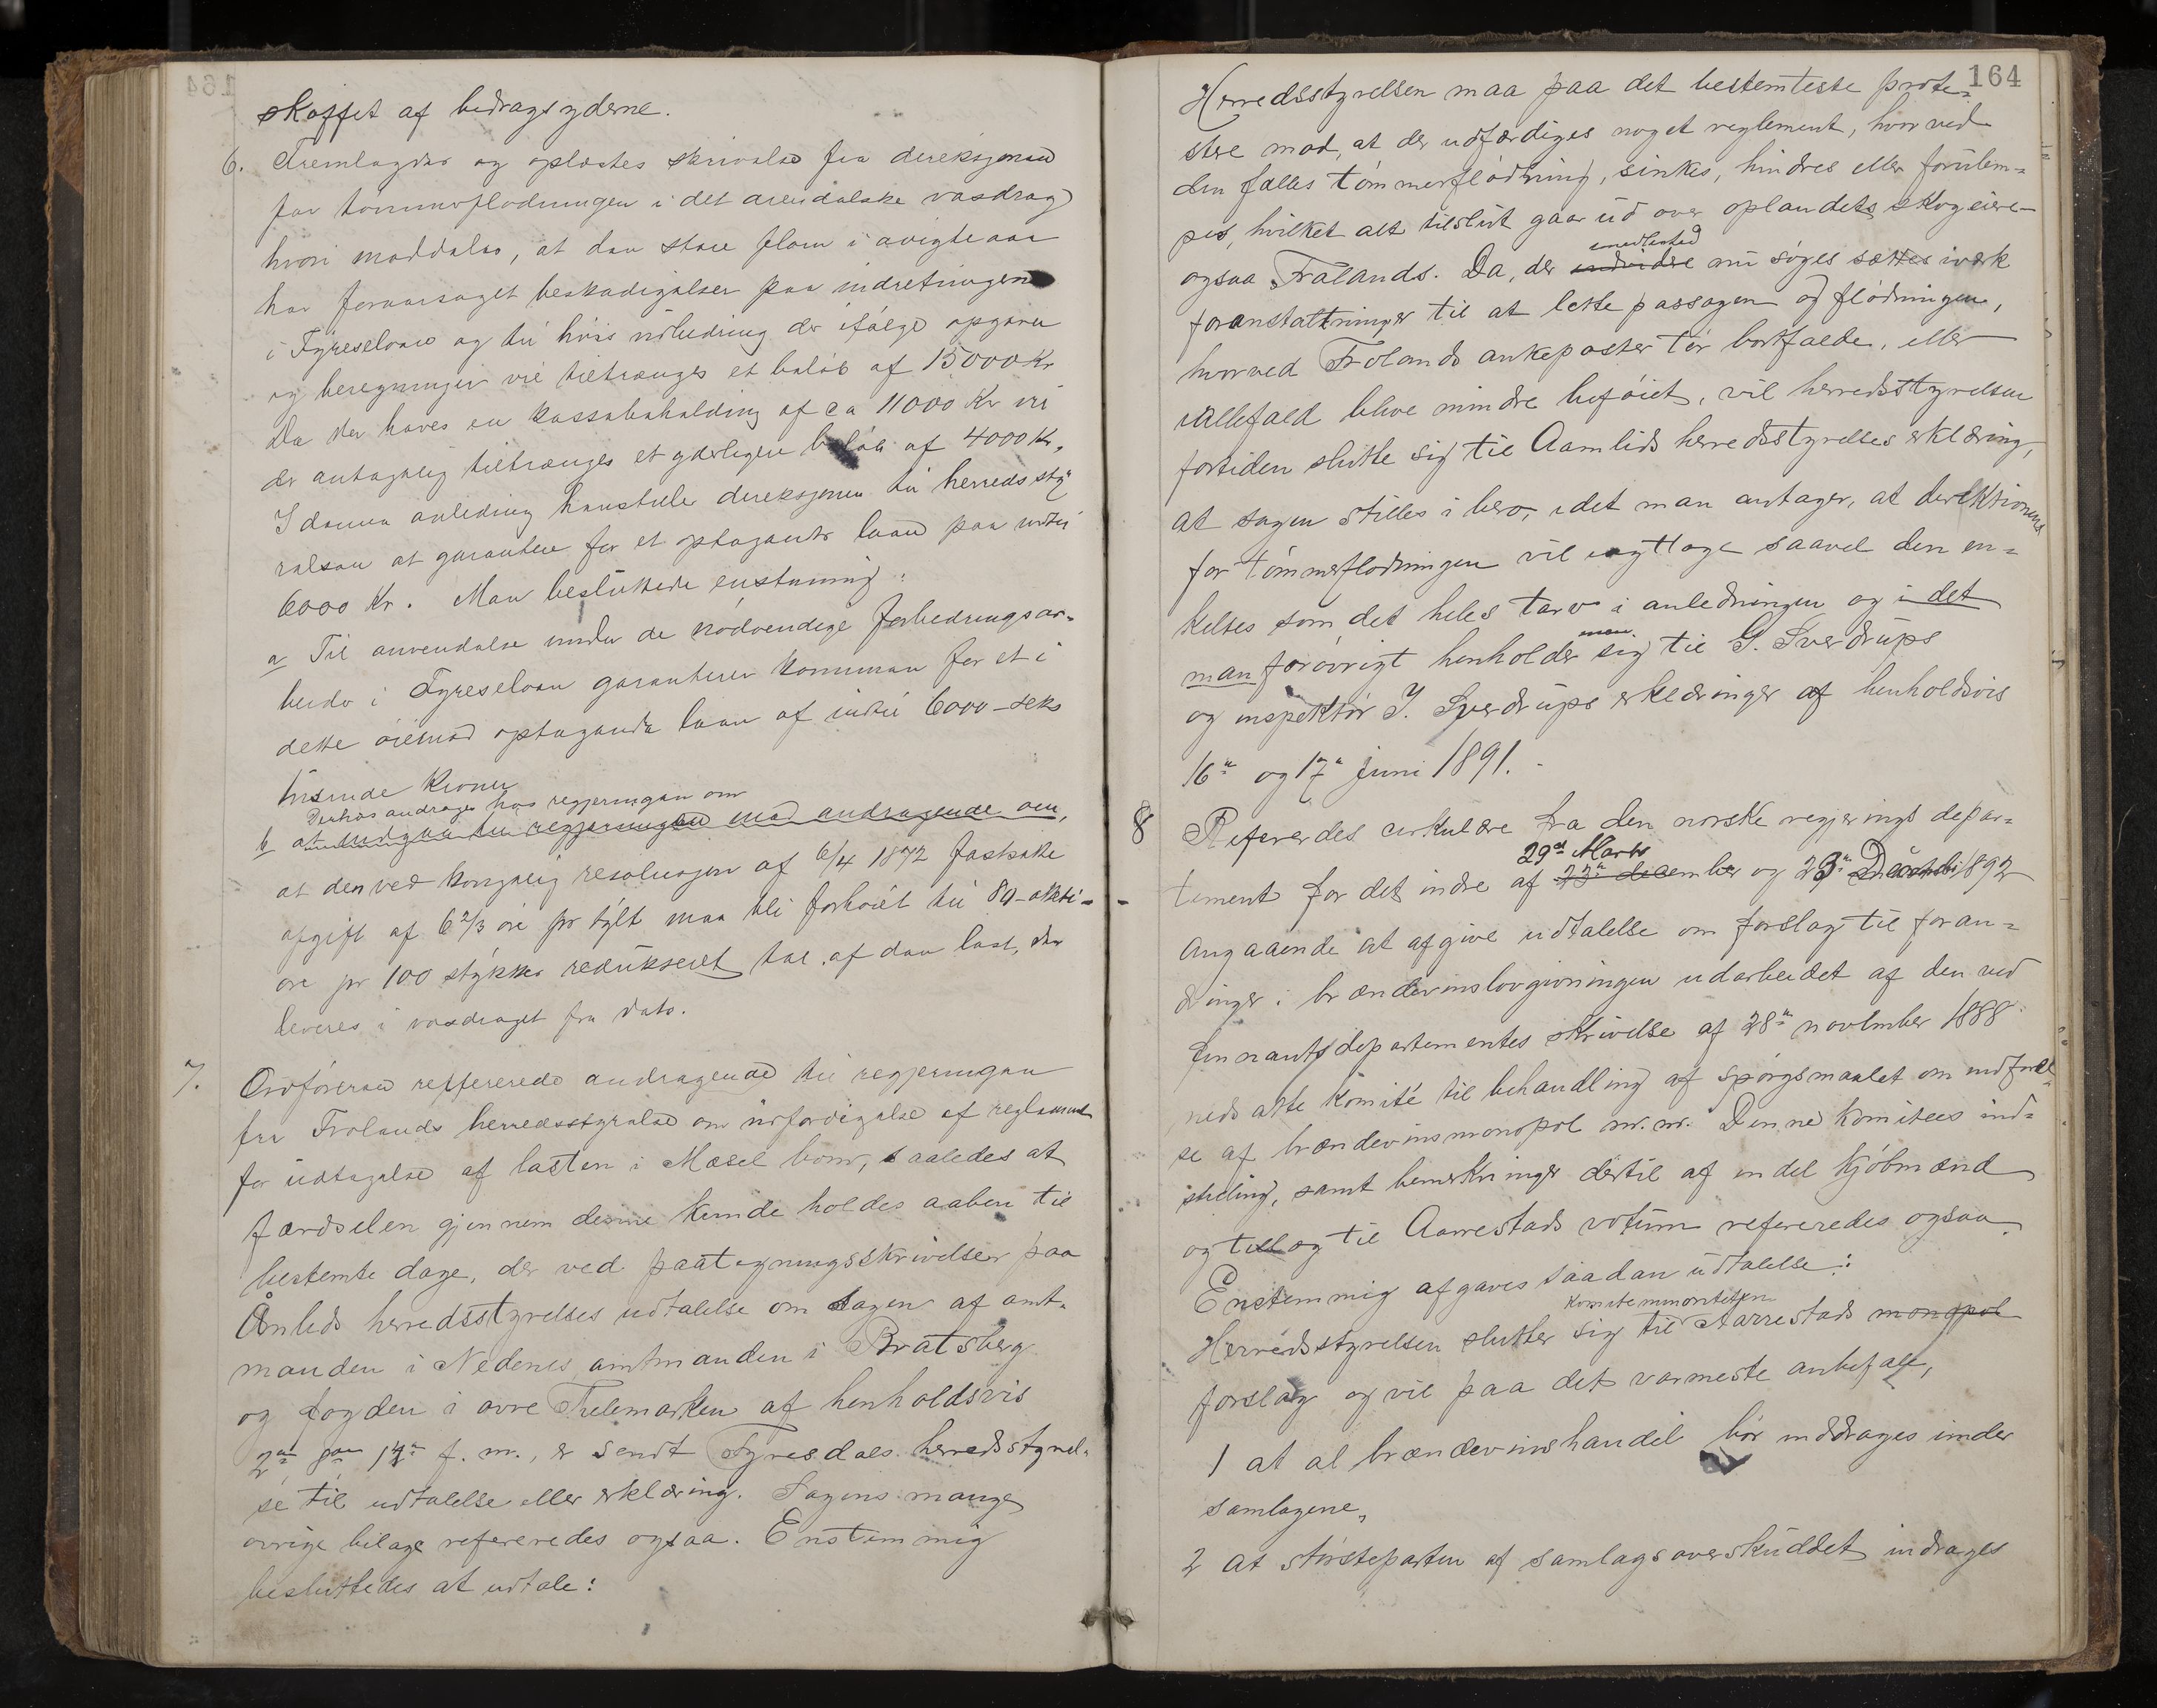 skaffet af bidragsyderne.
6. Fremlagdes og oplæstes skrivelse fra direksjonen
for tømmerflødningen i det arendalske vasdrag
hvori meddeles, at den store flom i avigte aar
har foraarsaget beskadigelser paa indretningene
i Fyreselvaae og til hvis udbedring der ifølge opgaver
og beregninger vil tiltrænges et beløb af 15000 Kr
Da der haves en kassabeholdning af ca 11000 Kr vil
der antagelig tiltrænges et yderligere beløb af 4000 Kr.
I denne anledning henstiller direksjonen til herredssty-
relsen at garantere for et optagende laan paa indtil
6000 Kr. Man besluttede enstemmig:
a Til anvendelse under de nødvendige forbedringsar-
beider i Fyreselvaae garanterer kommunen for et i
dette øiemed optagende laan af indtil 6000 – seks
tusende Kroner
Derhos andrages hos regjeringen om
b at indgaa til regjeringen med andragende om,
at den ved kongelig resolusjon af 6/4 1872 fastsatte
afgift af 6 2/3 øre pr tylt maa bli forhøiet til 80 – otti –
øre pr 100 stykker redukseret tal af den last, der
leveres i vasdraget fra dato.
7. Ordføreren reffererede andragende til regjeringen
fra Frolands herredsstyrelse om udfærdigelse af reglement
for udtagelse af lasten i Mæsel bom, saaledes at
færdselen gjennem denne kunde holdes aaben til
bestemte dage, der ved paategningsskrivelser paa
Åmlids herredsstyrelses udtalelse om sagen af amt-
manden i Nedenes amtmanden i Bratsberg
og fogden i øvre Thelemarken af henholdsvis
2den 8de 14de f. m., er sendt Fyresdals herredsstyrel-
se til udtalelse eller erklæring. Sagens mange
øvrige bilage refereredes ogsaa. Enstemmig
besluttedes at udtale:
164
Herredsstyrelsen maa paa det bestemteste prote-
stere mod, at der udfærdiges noget reglement, hvorved
den fælles tømmerflødning, sinkes, hindres eller forulem-
pes, hvilket alt tilslut gaar ud over oplandets skogeiere –
imidlertid
ogsaa Frolands. Da, der endvidere nu søges sættes iværk
foranstaltninger til at lette passagen og flødningen,
hvorved Frolands ankeposter tør bortfalde, eller
iallefald blive mindre beføiet, vil herredsstyrelsen
fortiden slutte sig til Aamlids herredsstyrelses erklæring,
at sagen stilles i bero, idet man antager, at direktionene
for tømmerflødningen vil iagttage saavel den en-
keltes som det heles tarv i anledningen og i det
man
man forøvrigt henholder sig til G. Sverdrups
og inspektør J. Sverdrups erklæringer af henholdsvis
16de og 17de Juni 1891. –
8 Refereredes cirkulære fra den norske regjerings depar-
29de Marts
tement for det indre af 23de december og 23de December 1892
angaaende at afgive udtalelse om forslag til foran-
dringer i brændevinslovgivningen udarbeidet af den ved
finnantsdepartementes skrivelse af 28de november 1888
nedsatte komité til behandling af spørgsmaalet om indførel-
se af brændevinsmonopol m. m. Denne komitees ind-
stilling, samt bemerkninger dertil af en del kjøbmænd
og tillæg til Aarrestads votum refereredes ogsaa
Enstemmig afgaves saadan udtalelse:
komiteminoriteten
Herredsstyrelsen slutter sig til Aarrestads monopol
forslag og vil paa det varmeste anbefale,
1 at al brændevinshandel bør inddrages under
samlagene,
2 at størsteparten af samlagsoverskuddet inddrages